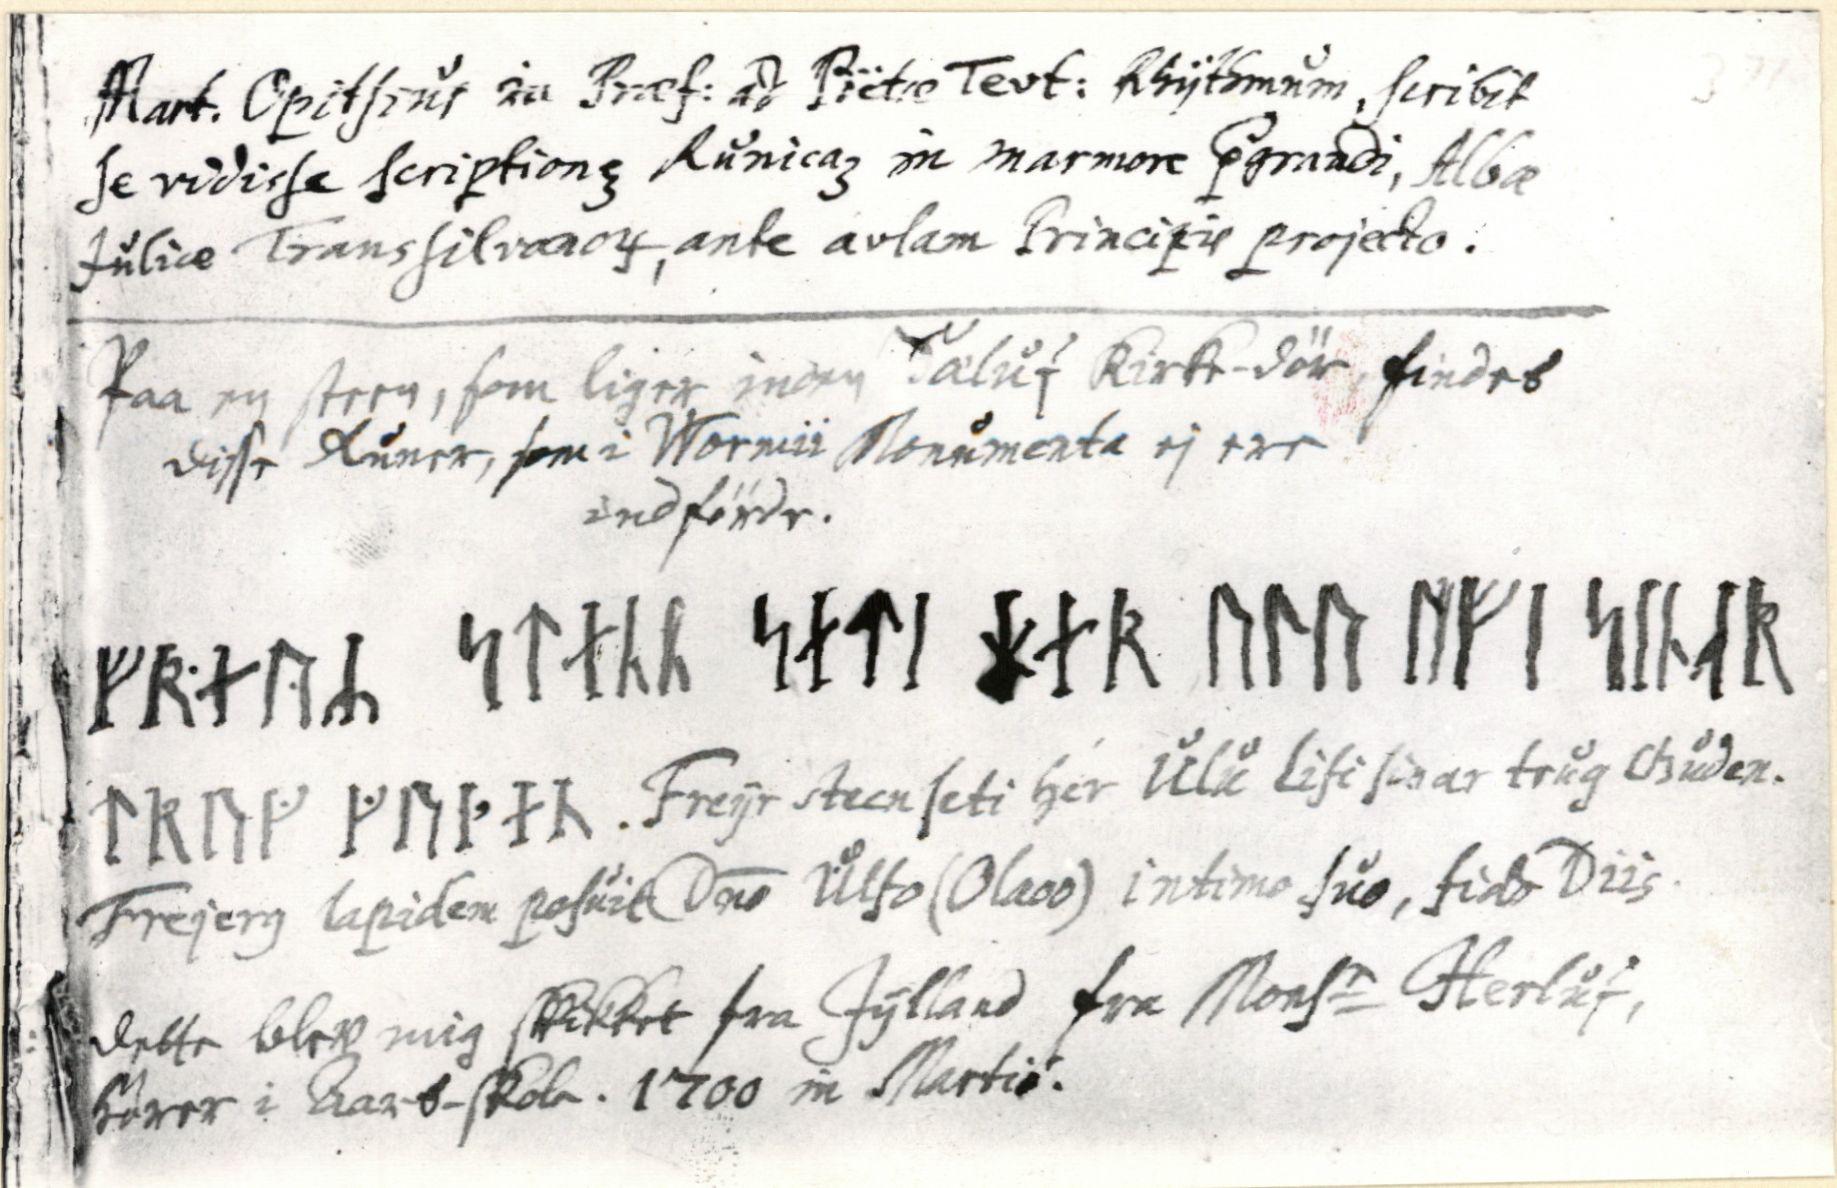 Mart. Opitsius in Præf: ad Rhÿthmum, scribit
se vidisse scriptionꝫ Runicaꝫ in marmore ꝑgrandi, Albæ
Juliæ Transsilvanoꝝ, ante avlam Principis projecto.
Paa en steen, som liger inden Taaluf Kirke-dör, findes
disse Runer, som i Wormii Monumenta ej ere
indförde.
ᚠᚱᚬᚢ ᛋᛏᚬᚿᚿ ᛋᚬᛏᛁ ᚼᚬᚱ ᚢᛚᚢ
ᛏᚱᚢᚠ ᚠᚢᚦᚬᚿ. Freÿr steen seti hér Ulu Lifi sinar trug Guden.
Frejerg lapidem posuit Dno Ulfo (Olaoo) intimo suo, fido Diis.
dette blev mig skikket fra Jÿlland fra Monsr Herluf,
Hörer i skole. 1700 in Martio.